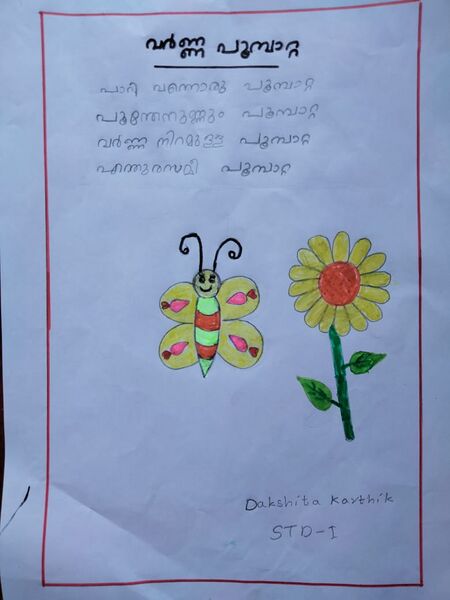 വർണ്ണ പൂമ്പാറ്റ
പാറി വന്നൊരു പൂമ്പാറ്റ
പൂന്തേനുണ്ണും പൂമ്പാറ്റ
വർണ്ണ നിറമുള്ള പൂമ്പാറ്റ
എന്തുരസമീ പൂമ്പാറ്റ
Dakshita Karthik
STD-I